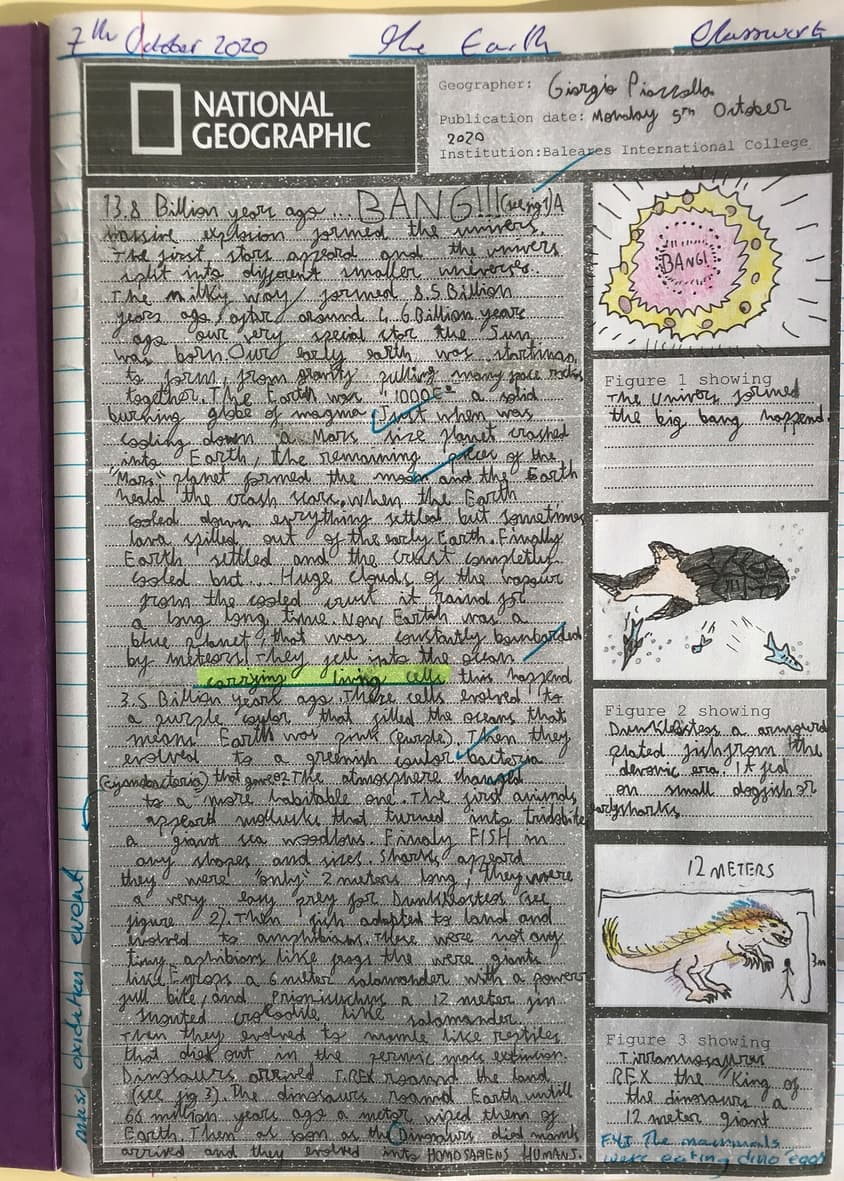 7th October 2020 The Earth Classwork
NATIONAL
GEOGRAPHIC
Geographer: Giorgio Piazzolla
Publication date: Monday 5th October
2020
Institution: Baleares International College
13.8 Billion years ago ... BANG!!! (see fig 1) A
massive explosion formed the univers.
The first stars appeard and the univers
split into different smaller universes.
The milky way formed 8.5 Billion
years ago, after around 4.6 Billion years
ago our very special star the Sun
was born. Our early earth was starting
to form, from gravity pulling many space rocks
together. The Earth was 1000 Cº a solid
burning globe of magma. Just when was
cooling down a Mars size planet crashed
into Earth, the remaining pieces of the
"Mars" planet formed the moon and the Earth
heald the crash scars. When the Earth
cooled down everything settled but sometimes
lava spilled out of the early Earth. Finally
Earth settled and the crust completly
cooled but... Huge clouds of the vapour
from the cooled crust it raind for
a long long time. Now Earth was a
blue planet, that was constantly bombarded
by meteors! They fell into the ocean
carrying living cells this happend
3.5 Billion years ago. These cells evolved to
a purple coulor that filled the oceans that
means Earth was pink (purple). Then they
evolved to a greenish coulor bacteria
(cyanobacteria) that gave O2. The atmosphere changed
to a more habitable one. The first animals
appeard mollusks that turned into trilobite
A giant sea woodlous. Finaly FISH in
any shapes and sizes. Sharks appeard
they were "only" 2 meters long, they were
a very easy prey for Dunkleosteos (see
figure 2). Then fish adapted to land and
evolved to amphibians. These were not any
tiny anhibians like frogs the were giants
like Eryops a 6 meter salamander with a power
full bite, and Prionisuchus a 12 meter fin
snouted crocodile like salamander.
Then they evolved to mamle like reptiles
that died out in the permic mass extincion.
Dinosaurs arrived T.REX roamd the land
(see fig 3). The dinosaurs roamd Earth untill
66 million years ago a meteor wiped them of
Earth. Then as soon as the Dinosaurs died mamls
arrived and they evolved into HOMOSAPIENS HUMANS.
mass oxidation event
BANG!
Figure 1 showing
The Univers formed
the big bang happend.
Figure 2 showing
Dunkleosteos a armourd
plated fish from the
devonic era. It fed
on small dogfish or
early sharks
12 METERS
3m
Figure 3 showing
Tirrannosaurus
REX the "King of
the dinosaurs a
12 meter giant
FYI The mammals
were eating dino eggs